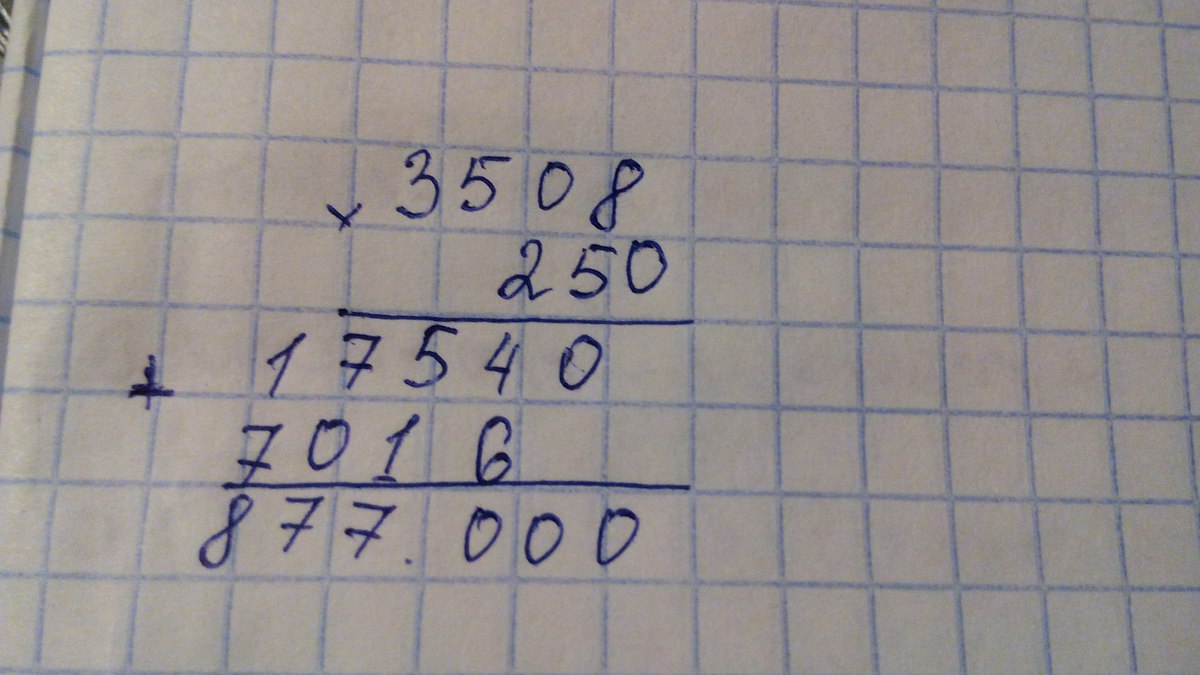 × 3508
250
+ 17540
7016
877.000